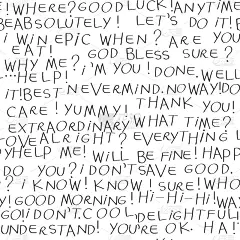 E! WHERE? GOOD LUCK! ANYTIME
BEABSOLUTELY! LET'S DO IT!
i WiN EPIC WHEN? ARE YOU
EAT! GOD BLESS SURE?
WHY ME? i'M YOU! DONE. WELL
...HELP!
iT! BEST NEVERMIND. NOWAY! DO
CARE! YUMMY! THANK YOU!
EXTRAORDINARY WHAT TIME?
OVE ALRIGHT? EVERYTHING
Y HELP ME! WiLL BE FINE! HAPP
DO YOU? i DON'T SAVE GOOD.
? i KNOW! KNOW! SURE! WHO
Y! GOOD MORNING! Hi-Hi-Hi! WA
GO! iDON'T. COOL DELIGHTFUL!
UNDERSTAND! YOU'RE OK. HA!